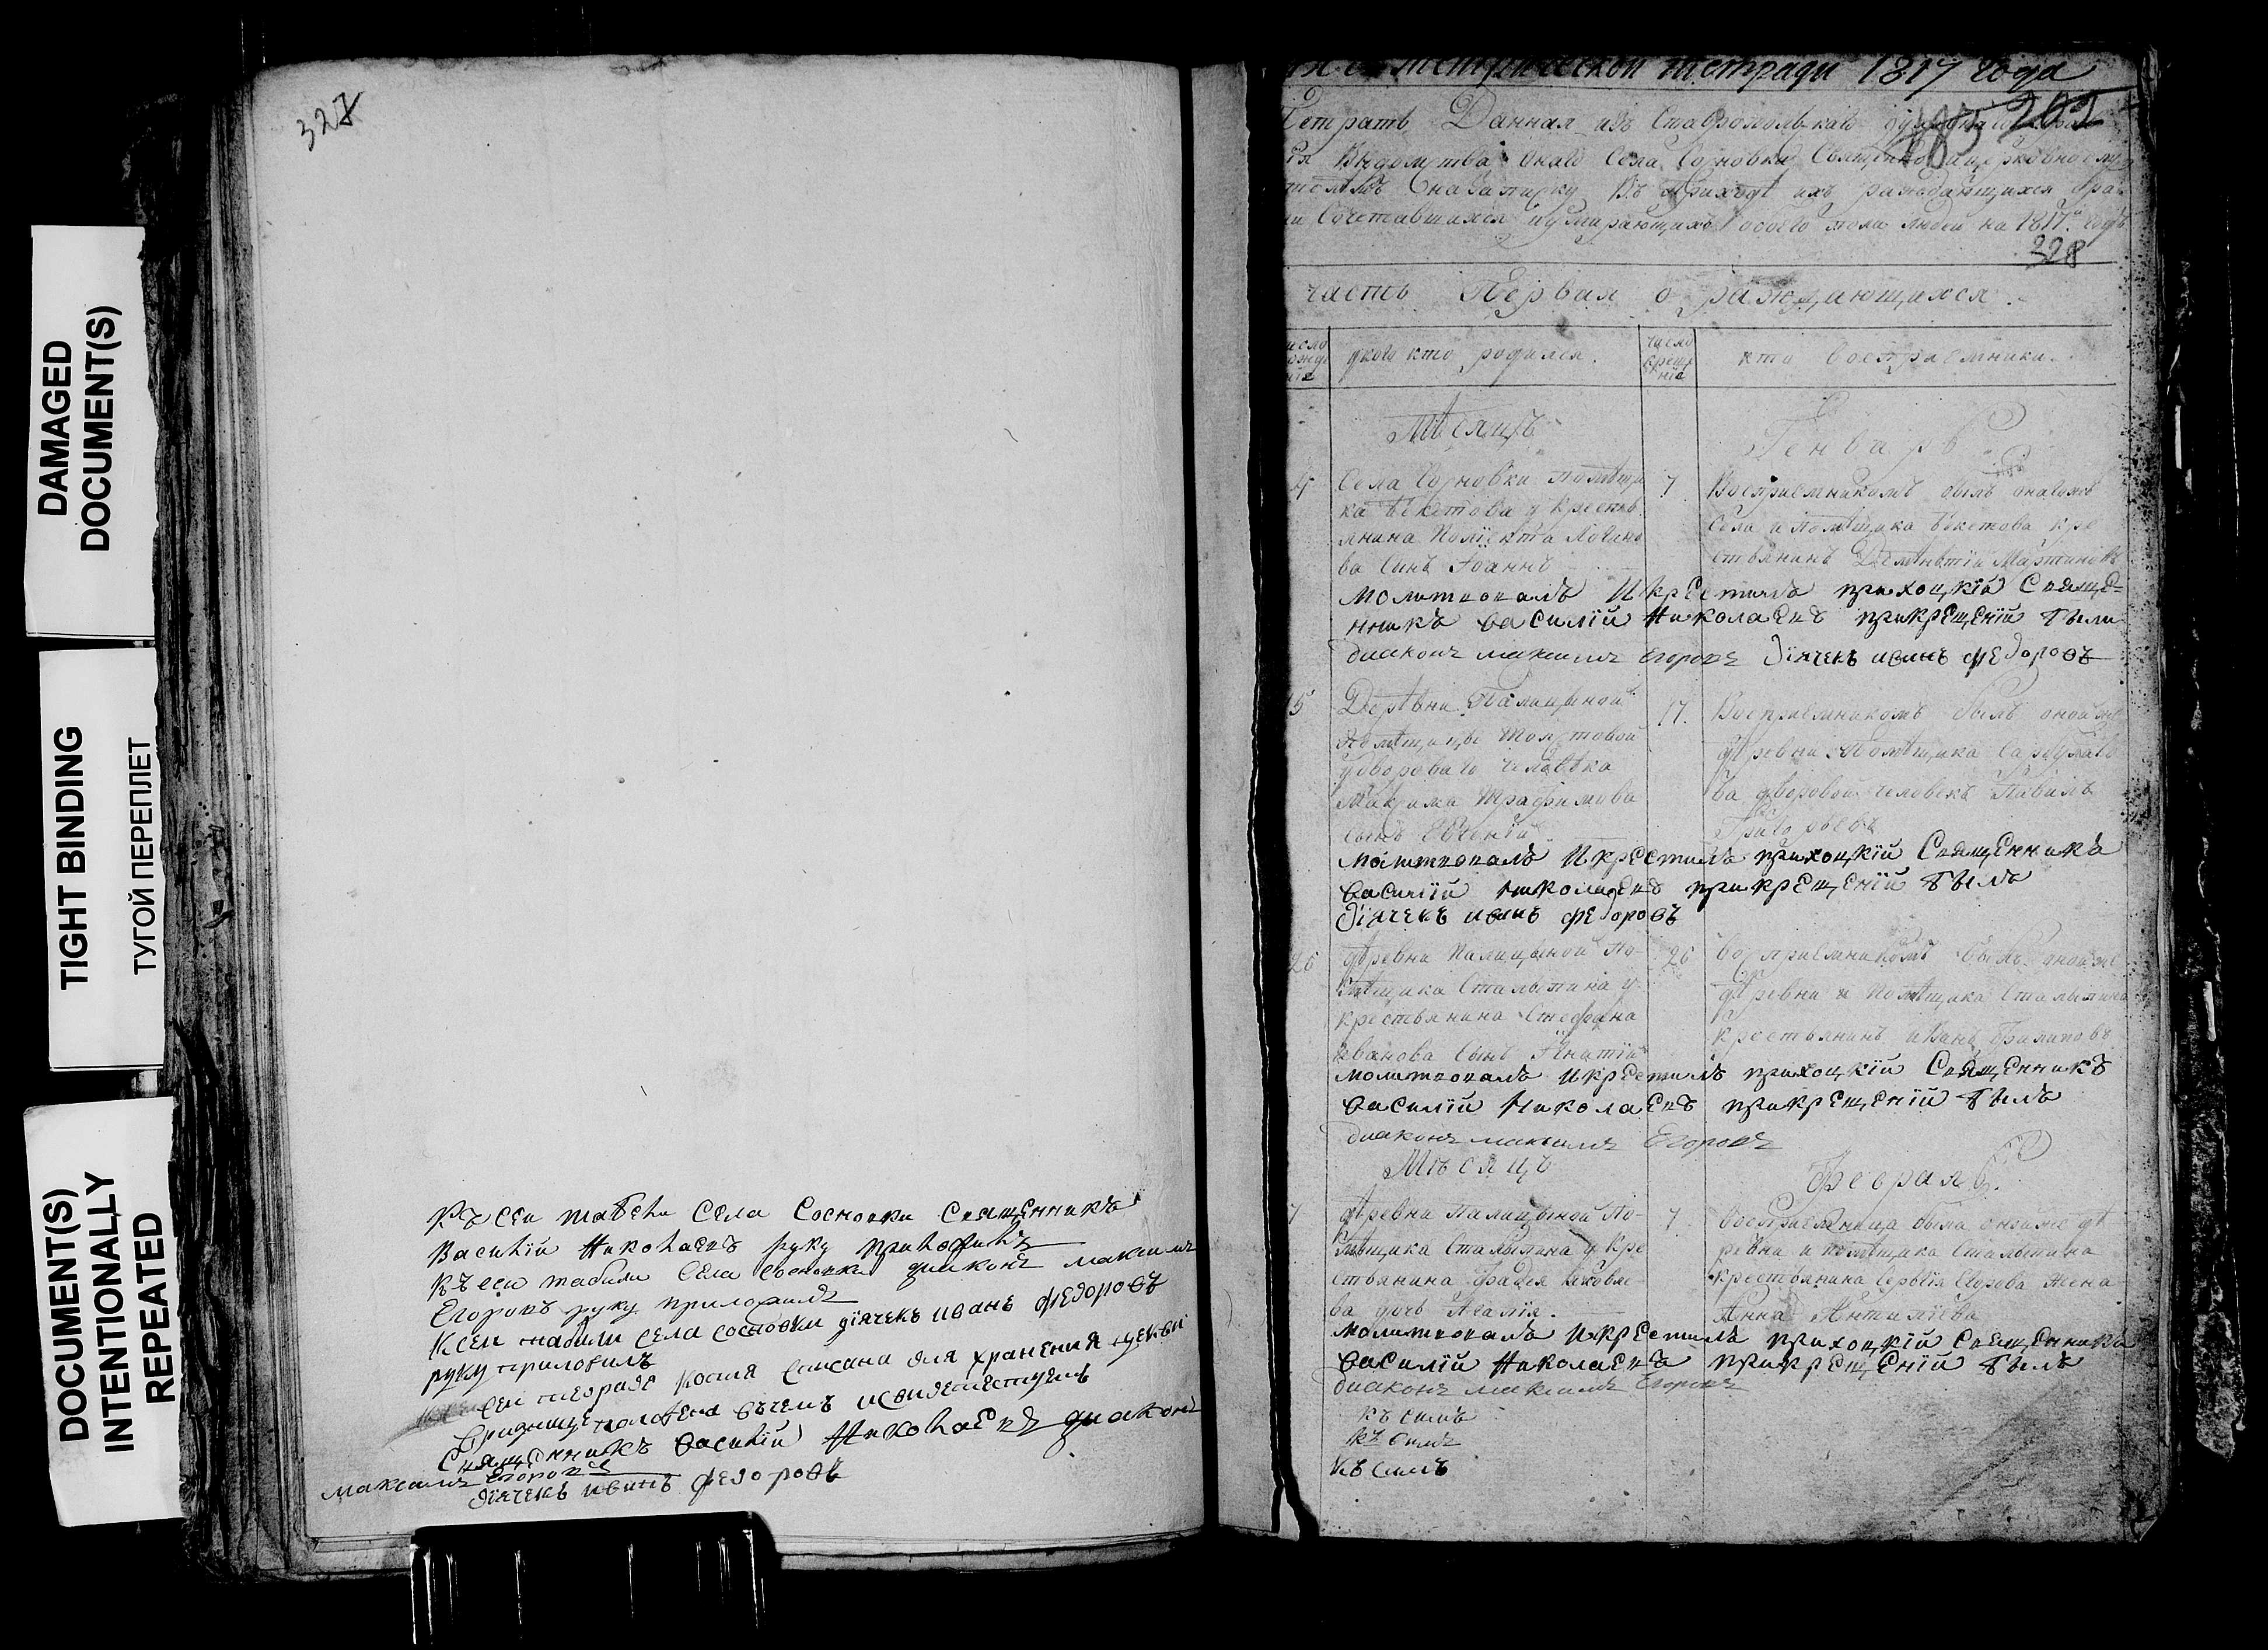 DAMAGED
DOCUMENT(S)
TIGHT BINDING
ТУГОЙ ПЕРЕПЛЕТ
DOCUMENT(S)
INTENTIONALLY
REPEATED
327
Къ сеи табели Села Сосновки Священникъ
Василій Николаевъ руку приложилъ
Къ сеи табели Села Сосновки диаконъ максимъ
Егоровъ руку приложилъ
К сеи табели села сосновки діячекъ иванъ федоровъ
руку приложилъ
копия списана для хранения
въ чемъ и свидетелствуемъ
Священникъ Василій Николаевъ диаконъ
максимъ Егоровъ
діячекъ иванъ федоровъ
метрической тетради 1817 года
202
Данная изъ Ставропольскаго
Вѣдомства онаго Села Сосновки Священно и церковнослу
на записку въ приходѣ ихъ раждающихся бра
Сочетавшихся и умирающихъ обоего пола людей на 1817й годъ
328
часть Первая о раждающихся
у кого кто родился.
число крещенія
кто воспріемники.
Мѣсяцъ
Генварь
4
Села Сосновки помѣщи
ка Бекетова у кресть
янина
ва Сынъ Іоаннъ
7
Воспріемникомъ былъ онагожъ
Села и помѣщика Бекетова кре
стьянинъ Дементій Мартиновъ
молитвовалъ И крестилъ прихоцкій Священникъ
василій Николаевъ при крещеніи были
диаконъ максимъ Егоровъ діячекъ иванъ федоровъ
15
Деревни Палицыной
Помѣщицы Толстовой
у двороваго человѣка
Максима Трафимова
сынъ Евгеній
17.
Воспріемникомъ былъ оной же
деревни помѣщика
ва дворовой человекъ Павелъ
Григорьевъ
молитвовалъ И крестилъ прихоцкій Священникъ
василій николаевъ при крещеніи былъ
діячекъ иванъ федоровъ
26
деревни Палицыной По-
мѣщика Сталыпина у
крестьянина Стефана
Иванова Сынъ Игнатій
26
воспріемникомъ былъ оной же
деревни и помѣщика Сталыпина
крестьянинъ Иванъ Филиповъ
молитвовалъ И крестилъ прихоцкій Священникъ
василій Николаевъ при крещеніи былъ
диаконъ максимъ Егоровъ
Мѣсяцъ
Февраль
7
деревни Палицыной По-
мѣщика Сталыпина у кре
стьянина Фадея Яковле
ва дочь Агапія.
7
воспріемница была оной же де
ревни и помѣщика Сталыпина
крестьянина Сергѣя Егорова жена
Анна Антипіева
молитвовалъ И крестилъ прихоцкій Священникъ
василій Николаевъ при крещеніи былъ
диаконъ максимъ Егоровъ
къ симъ
къ симъ
къ симъ